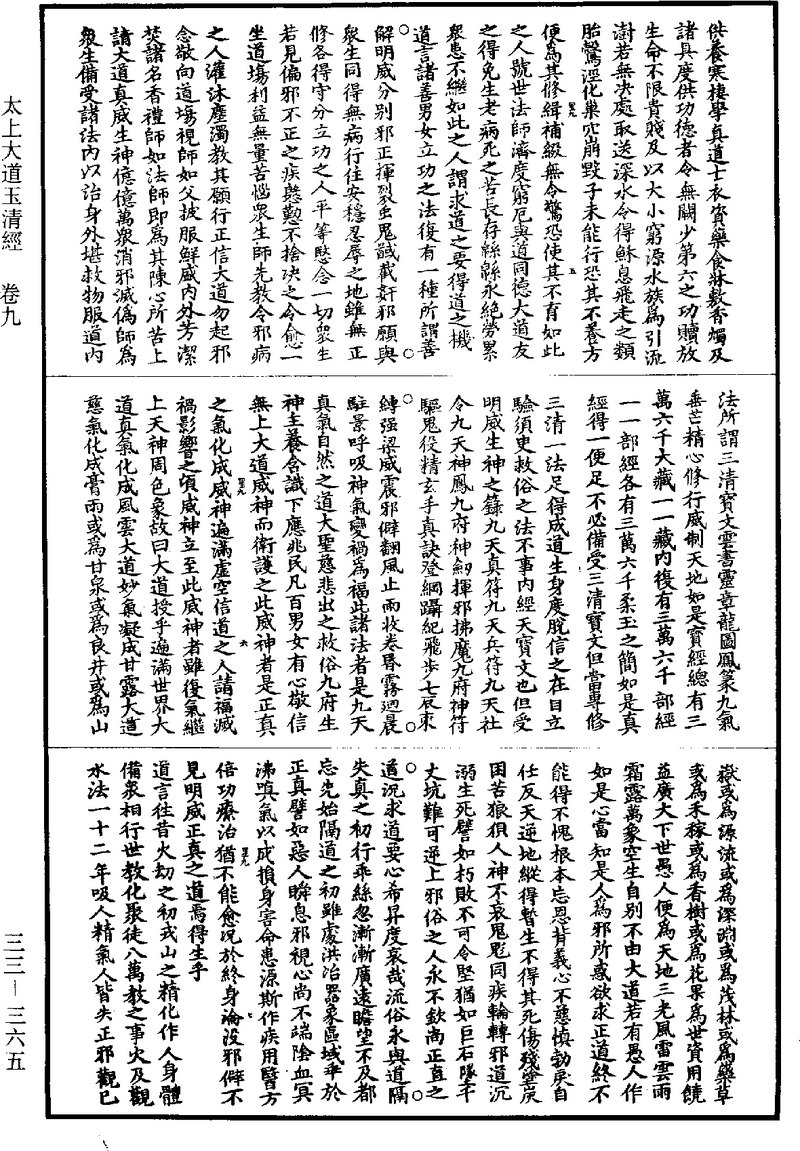 太上大道玉清經　卷九
三三－三六五
供養寒棲學真道士衣資藥食牀敷香燭及
諸具度供功德者令無闕少第六之功贖放
生命不限貴賤及以大小窮源水族為引流
澍若無決處取送深水令得穌息飛走之類
胎鷩溼化巢穴崩毀子未能行恐其不養方
便為其修緝補綴無令驚恐使其不育如此
之人號世法師濟度窮厄與道同德大道友
之得免生老病死之苦長存緜緜永絕勞累
眾患不繼如此之人謂求道之要得道之機
道言諸善男女立功之法復有一種所謂善
解明威分别邪正揮裂虫鬼馘截姧邪願與
眾生同得無病行住安穩忍辱之地雖無正
修各得守分立功之人平等慜念一切眾生
若見偏邪不正之疾慜懃不捨決之令愈一
坐道場利益無量苦惱眾生師先教令邪病
之人灌沐塵濁教其願行正信大道勿起邪
念敬向道場視師如父披服鮮威內外芳潔
焚諸名香禮師如法師即為其陳心所苦上
請大道真威生神億億萬眾消邪滅偽師為
眾生備受諸法內以治身外堪救物服道內
法所謂三清寶文雲書靈章龍圖鳳篆九氣
垂芒精心修行威制天地如是寶經總有三
萬六千大藏一一藏內復有三萬六千部經
一一部經各有三萬六千柔玉之簡如是真
經得一便足不必備受三清寶文但當專修
三清一法足得成道生身度脫信之在目立
驗須臾救俗之法不事內經天寶文也但受
明威生神之籙九天真符九天兵符九天社
令九天神鳳九府神劒揮邪拂魔九府神符
驅鬼役精玄手真訣登綱躡紀飛步七辰束
縛强梁威震邪僻翻風止雨收卷昬霧迴晨
駐景呼吸神氣變禍為福此諸法者是九天
真氣自然之道大聖慈悲出之救俗九府生
神主養含識下應兆民凡百男女有心敬信
無上大道威神而衛護之此威神者是正真
之氣化成威神遍滿虛空信道之人請福滅
禍影響之頃威神立至此威神者雖復氣繼
上天神周色象故曰大道授乎遍滿世界大
道真氣化成風雲大道妙氣凝成甘露大道
慈氣化成膏雨或為甘泉或為良井或為山
嶽或為源流或為深淵或為茂林或為藥草
或為禾稼或為香樹或為花果為世資用饒
益廣大下世愚人便為天地三光風雷雲雨
霜露萬象空生自别不由大道若有愚人作
如是心當知是人為邪所惑欲求正道終不
能得不愧根本忘恩背義心不慈慎勃戾自
任反天逆地縱得暫生不得其死傷殘蠥戾
困苦狼狽人神不哀鬼魁同疾輪轉邪道沉
溺生死譬如朽敗不可令堅猶如巨石墜千
丈坑難可逆上邪俗之人永不欽尚正直之
道沉求道要心希昇度哀哉流俗永與道隔
失真之初行乖絲忽漸漸廣遠瞻望不及都
忘先始隔道之初雖處洪治器象區域乖於
正真譬如惡人瞬息邪視心尚不端陰血冥
沸嗔氣以成損身害命患源斯作疾用醫方
倍功療治猶不能愈況於終身淪沒邪僻不
見明威正真之道焉得生乎
道言往昔火劫之初戎山之精化作人身體
備眾相行世教化聚徒八萬教之事火及觀
水法一十二年吸人精氣人皆失正邪觀已